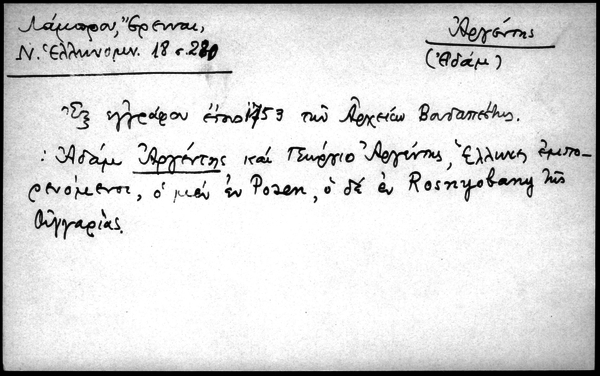 Λάμπρου, Ἔρευναι,
Ν. Ἑλληνομν. 18 σ. 280
Ἀργέντης
(Ἀδάμ)
Ἐξ ἐγγράφου ἔτους 1753 τῶν Ἀρχείων Βουδαπέστης.
: Ἀδάμ Ἀργέντης καὶ Γεώργιος Ἀργέντης, Ἕλληνες ἐμπο-
ρευόμενοι, ὁ μὲν ἐν Posen, ὁ δέ ἐν Rosnyobany τῆς
Οὑγγαρίας.